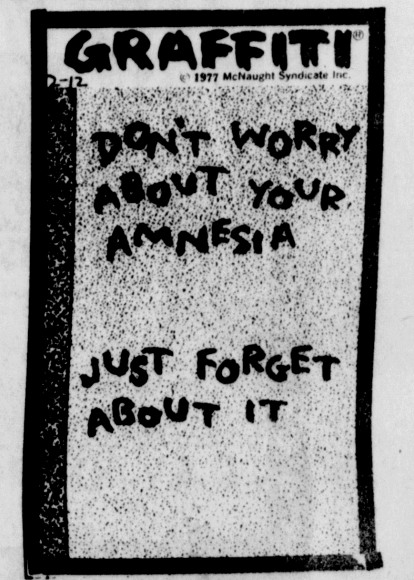 GRAFFITI®
2-12
© 1977 McNaught Syndicate Inc.
DON'T WORRY
ABOUT YOUR
AMNESIA
JUST FORGET
ABOUT IT